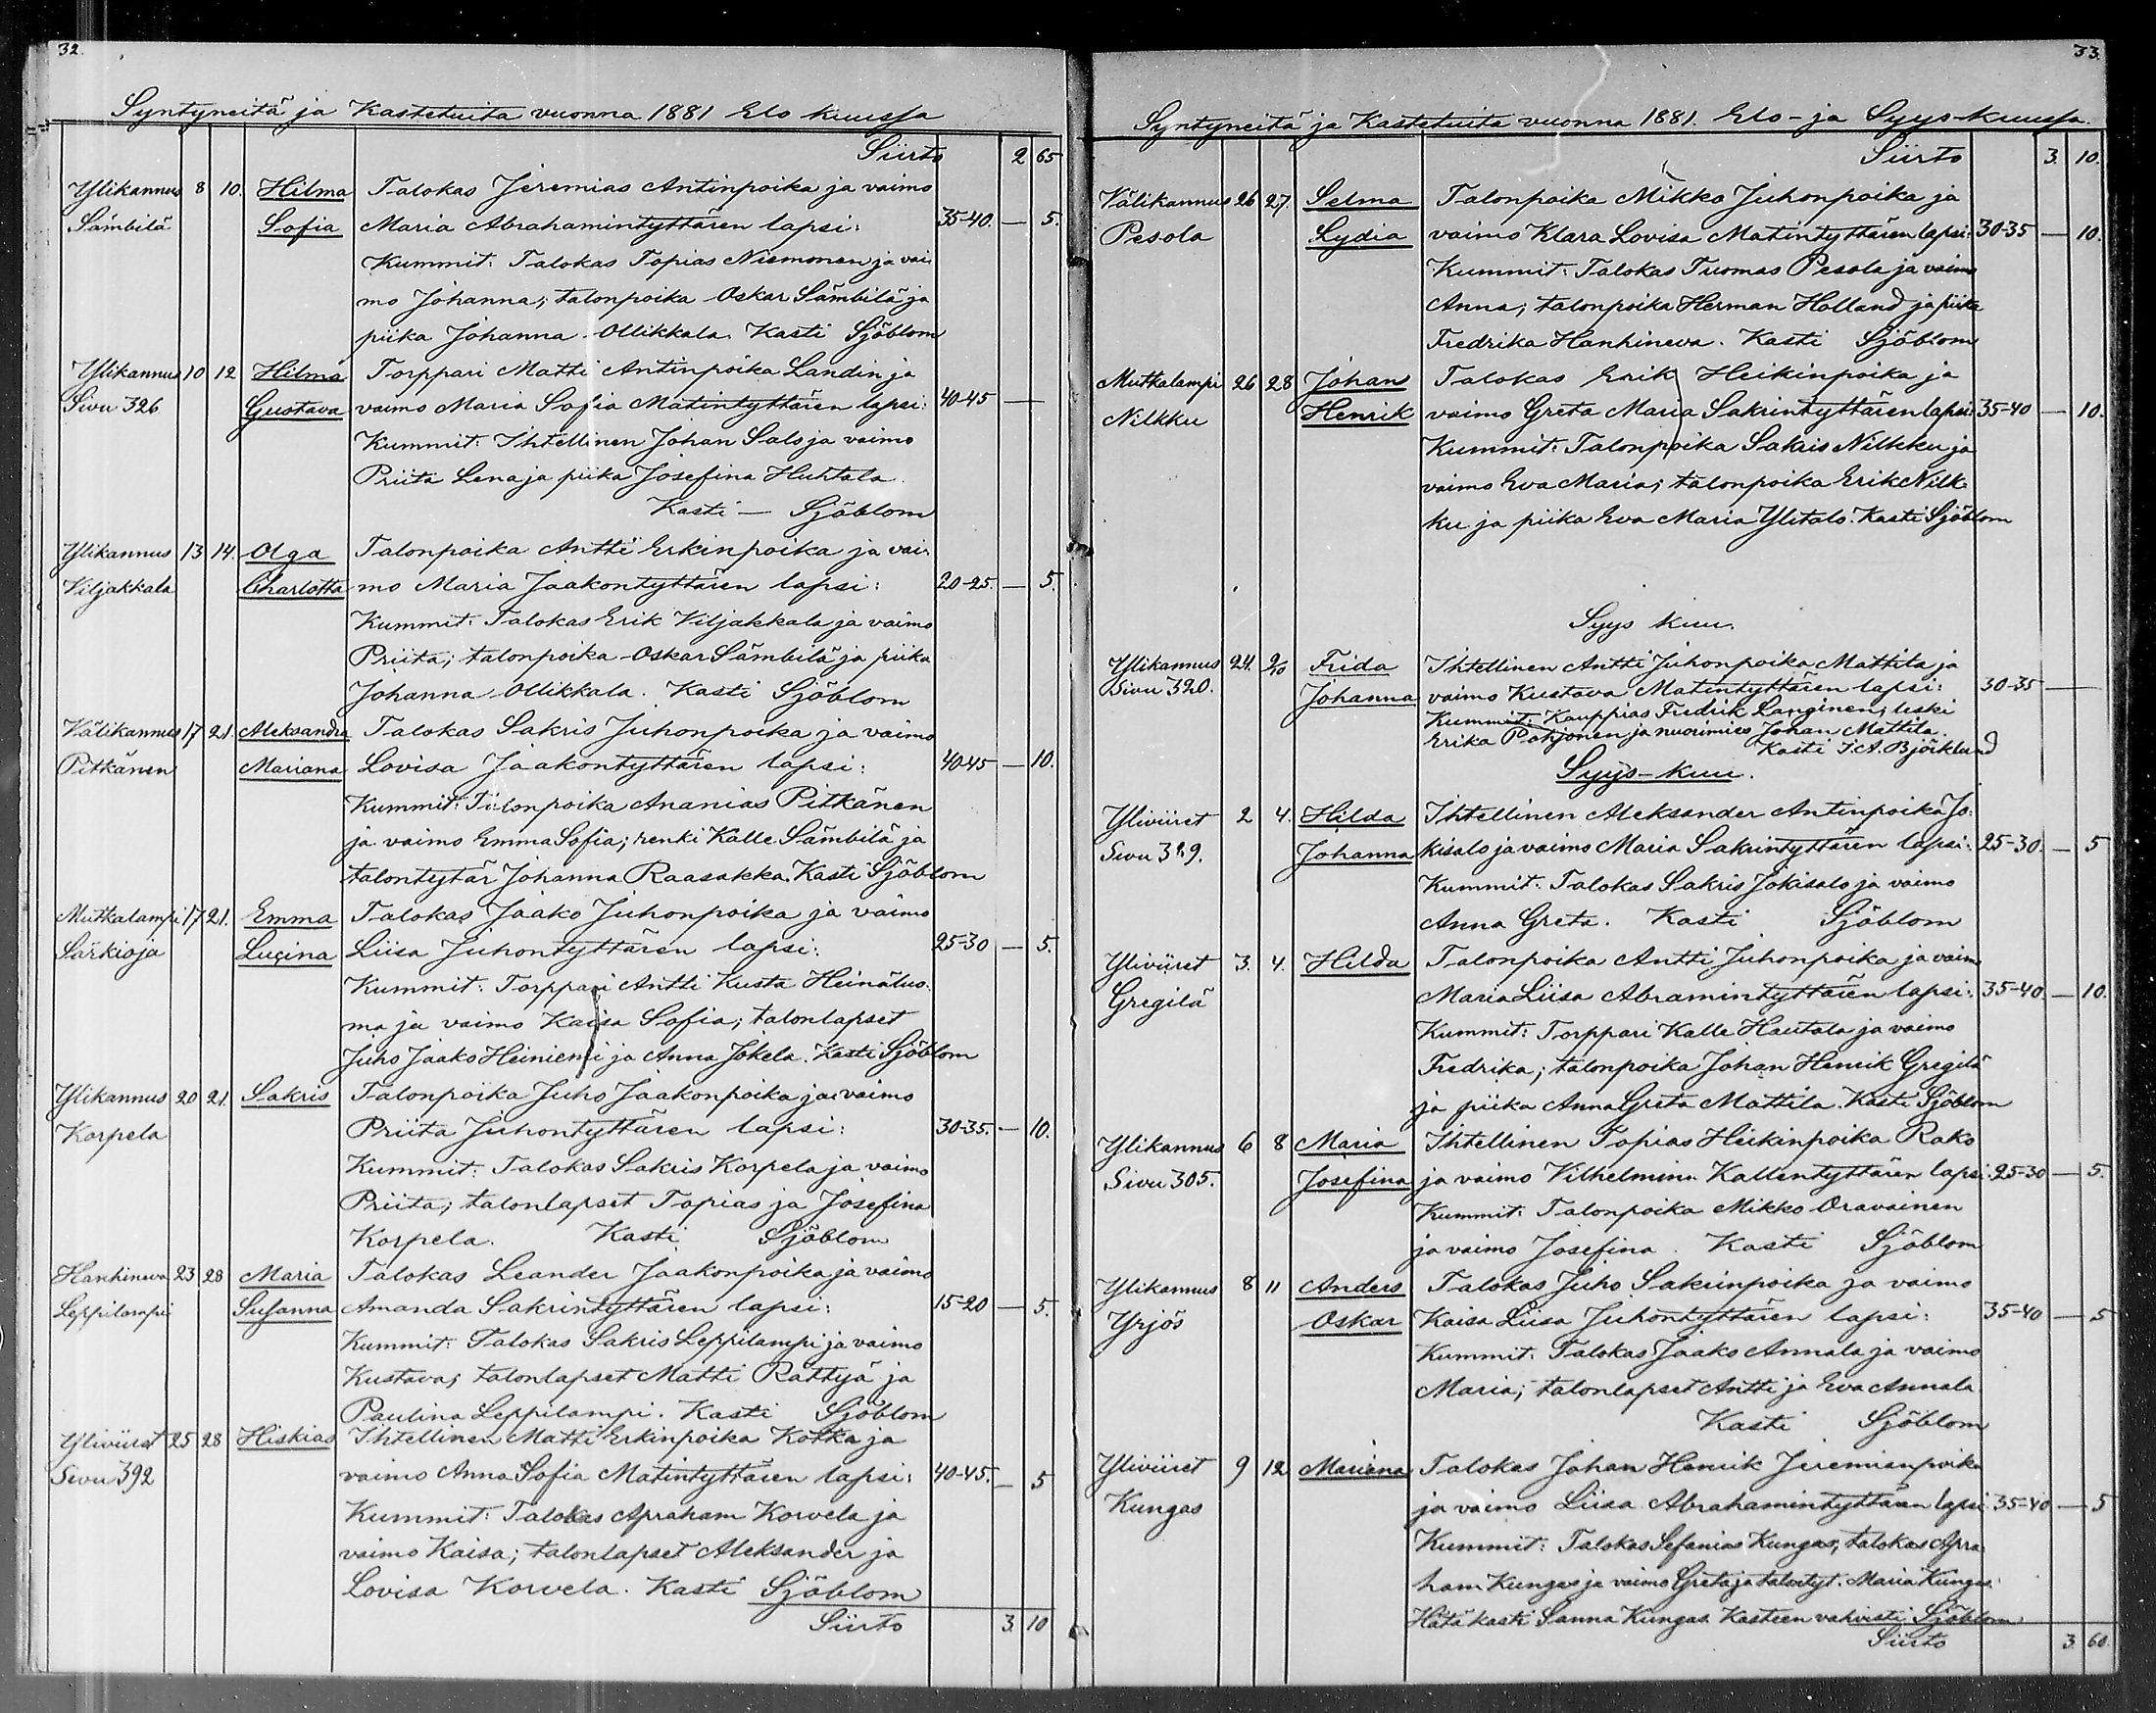 32.
Syntyneitä ja Kastetuita vuonna 1881 Elo kuussa
Siirto 2 65
Ylikannus 8 10. Hilma Talokas Jeremias Antinpoika ja vaimo
Sämbilä Sofia Maria Abrahamintyttären lapsi: 35-40. — 5.
Kummit: Talokas Topias Niemonen ja vai-
mo Johanna; talonpoika Oskar Sämbilä ja
piika Johanna Ollikkala. Kasti Sjöblom
Ylikannus 10 12 Hilma Torppari Matti Antinpoika Landin ja
Sivu 326 Gustava vaimo Maria Sofia Matintyttären lapsi: 40-45 —
Kummit: Ihtellinen Johan Salo ja vaimo
Priita Lena ja piika Josefina Huhtala.
Kasti — Sjöblom
Ylikannus 13 14. Olga Talonpoika Antti Erkinpoika ja vai-
Viljakkala Charlotta mo Maria Jaakontyttären lapsi: 20-25. — 5.
Kummit: Talokas Erik Viljakkala ja vaimo
Priita; talonpoika Oskar Sämbilä ja piika
Johanna Ollikkala. Kasti Sjöblom
Välikannus 17 21. Aleksandra Talokas Sakris Juhonpoika ja vaimo
Pitkänen Mariana Lovisa Jaakontyttären lapsi: 40-45 — 10.
Kummit: Talonpoika Ananias Pitkänen
ja vaimo Emma Sofia; renki Kalle Sämbilä ja
talontytär Johanna Raasakka. Kasti Sjöblom
Mutkalampi 17 21. Emma Talokas Jaako Juhonpoika ja vaimo
Särkioja Lucina Liisa Juhontyttären lapsi: 25-30 — 5.
Kummit: Torppari Antti Kusta Heinätuo-
ma ja vaimo Kaisa Sofia; talonlapset
Juho Jaako Heiniemi ja Anna Jokela. Kasti Sjöblom
Ylikannus 20 21. Sakris Talonpoika Juho Jaakonpoika ja vaimo
Korpela Priita Juhontyttären lapsi: 30-35. — 10.
Kummit: Talokas Sakris Korpela ja vaimo
Priita; talonlapset Topias ja Josefina
Korpela. Kasti Sjöblom
Hanhineva 23 28 Maria Talokas Leander Jaakonpoika ja vaimo
Leppilampi Susanna Amanda Sakrintyttären lapsi: 15-20 — 5.
Kummit: Talokas Sakris Leppilampi ja vaimo
Kustava; talonlapset Matti Rättyä ja
Paulina Leppilampi. Kasti Sjöblom
Yliviiret 25 28 Hiskias Ihtellinen Matti Erkinpoika Kotka ja
Sivu 392 vaimo Anna Sofia Matintyttären lapsi: 40-45. — 5
Kummit: Talokas Apraham Korvela ja
vaimo Kaisa; talonlapset Aleksander ja
Lovisa Korvela. Kasti Sjöblom
Siirto 3. 10
33.
Syntyneitä ja Kastetuita vuonna 1881. Elo- ja Syys-kuussa.
Siirto 3. 10.
Välikannus 26 27. Selma Talonpoika Mikko Juhonpoika ja
Pesola Lydia vaimo Klara Lovisa Matintyttären lapsi: 30-35 — 10.
Kummit: Talokas Tuomas Pesola ja vaimo
Anna; talonpoika Herman Holland ja piika
Fredrika Hanhineva. Kasti Sjöblom
Mutkalampi 26 28 Johan Talokas Erik Heikinpoika ja
Nilkku Henrik vaimo Greta Maria Sakrintyttären lapsi: 35-40 — 10.
Kummit: Talonpoika Sakris Nilkku ja
vaimo Eva Maria; talonpoika Erik Nilk-
ku ja piika Eva Maria Ylitalo. Kasti Sjöblom
Syys kuu.
Ylikannus 24. 2/10 Frida Ihtellinen Antti Juhonpoika Mattila ja
Sivu 320. Johanna vaimo Kustava Matintyttären lapsi: 30-35 —
Kummit: Kauppias Fredrik Langinen; leski
Erika Pohjonen ja nuorimies Johan Mattila.
Kasti J.A. Björklund
Syys-kuu.
Yliviiret 2 4. Hilda Ihtellinen Aleksander Antinpoika Jo-
Sivu 389. Johanna kisalo ja vaimo Maria Sakrintyttären lapsi: 25-30. — 5
Kummit: Talokas Sakris Jokisalo ja vaimo
Anna Greta. Kasti Sjöblom
Yliviiret 3. 4. Hilda Talonpoika Antti Juhonpoika ja vaimo
Gregilä Maria Liisa Abramintyttären lapsi: 35-40 — 10.
Kummit: Torppari Kalle Hautala ja vaimo
Fredrika; talonpoika Johan Henrik Gregilä
ja piika Anna Greta Mattila. Kasti Sjöblom
Ylikannus 6 8 Maria Ihtellinen Topias Heikinpoika Rako
Sivu 305. Josefina ja vaimo Vilhelmina Kallentyttären lapsi: 25-30 — 5.
Kummit: Talonpoika Mikko Oravainen
ja vaimo Josefina. Kasti Sjöblom
Ylikannus 8 11 Anders Talokas Juho Sakrinpoika ja vaimo
Yrjös Oskar Kaisa Liisa Juhontyttären lapsi: 35-40 — 5
Kummit: Talokas Jaako Annala ja vaimo
Maria; talonlapset Antti ja Eva Annala
Kasti Sjöblom
Yliviiret 9 12 Mariana Talokas Johan Henrik Jeremianpoika
Kungas ja vaimo Liisa Abrahamintyttären lapsi 35-40 — 5
Kummit: Talokas Sefanias Kungas; talokas Apra-
ham Kungas ja vaimo Greta ja talontyt. Maria Kungas.
Hätä kasti Sanna Kungas. Kasteen vahvisti Sjöblom
Siirto 3. 60.